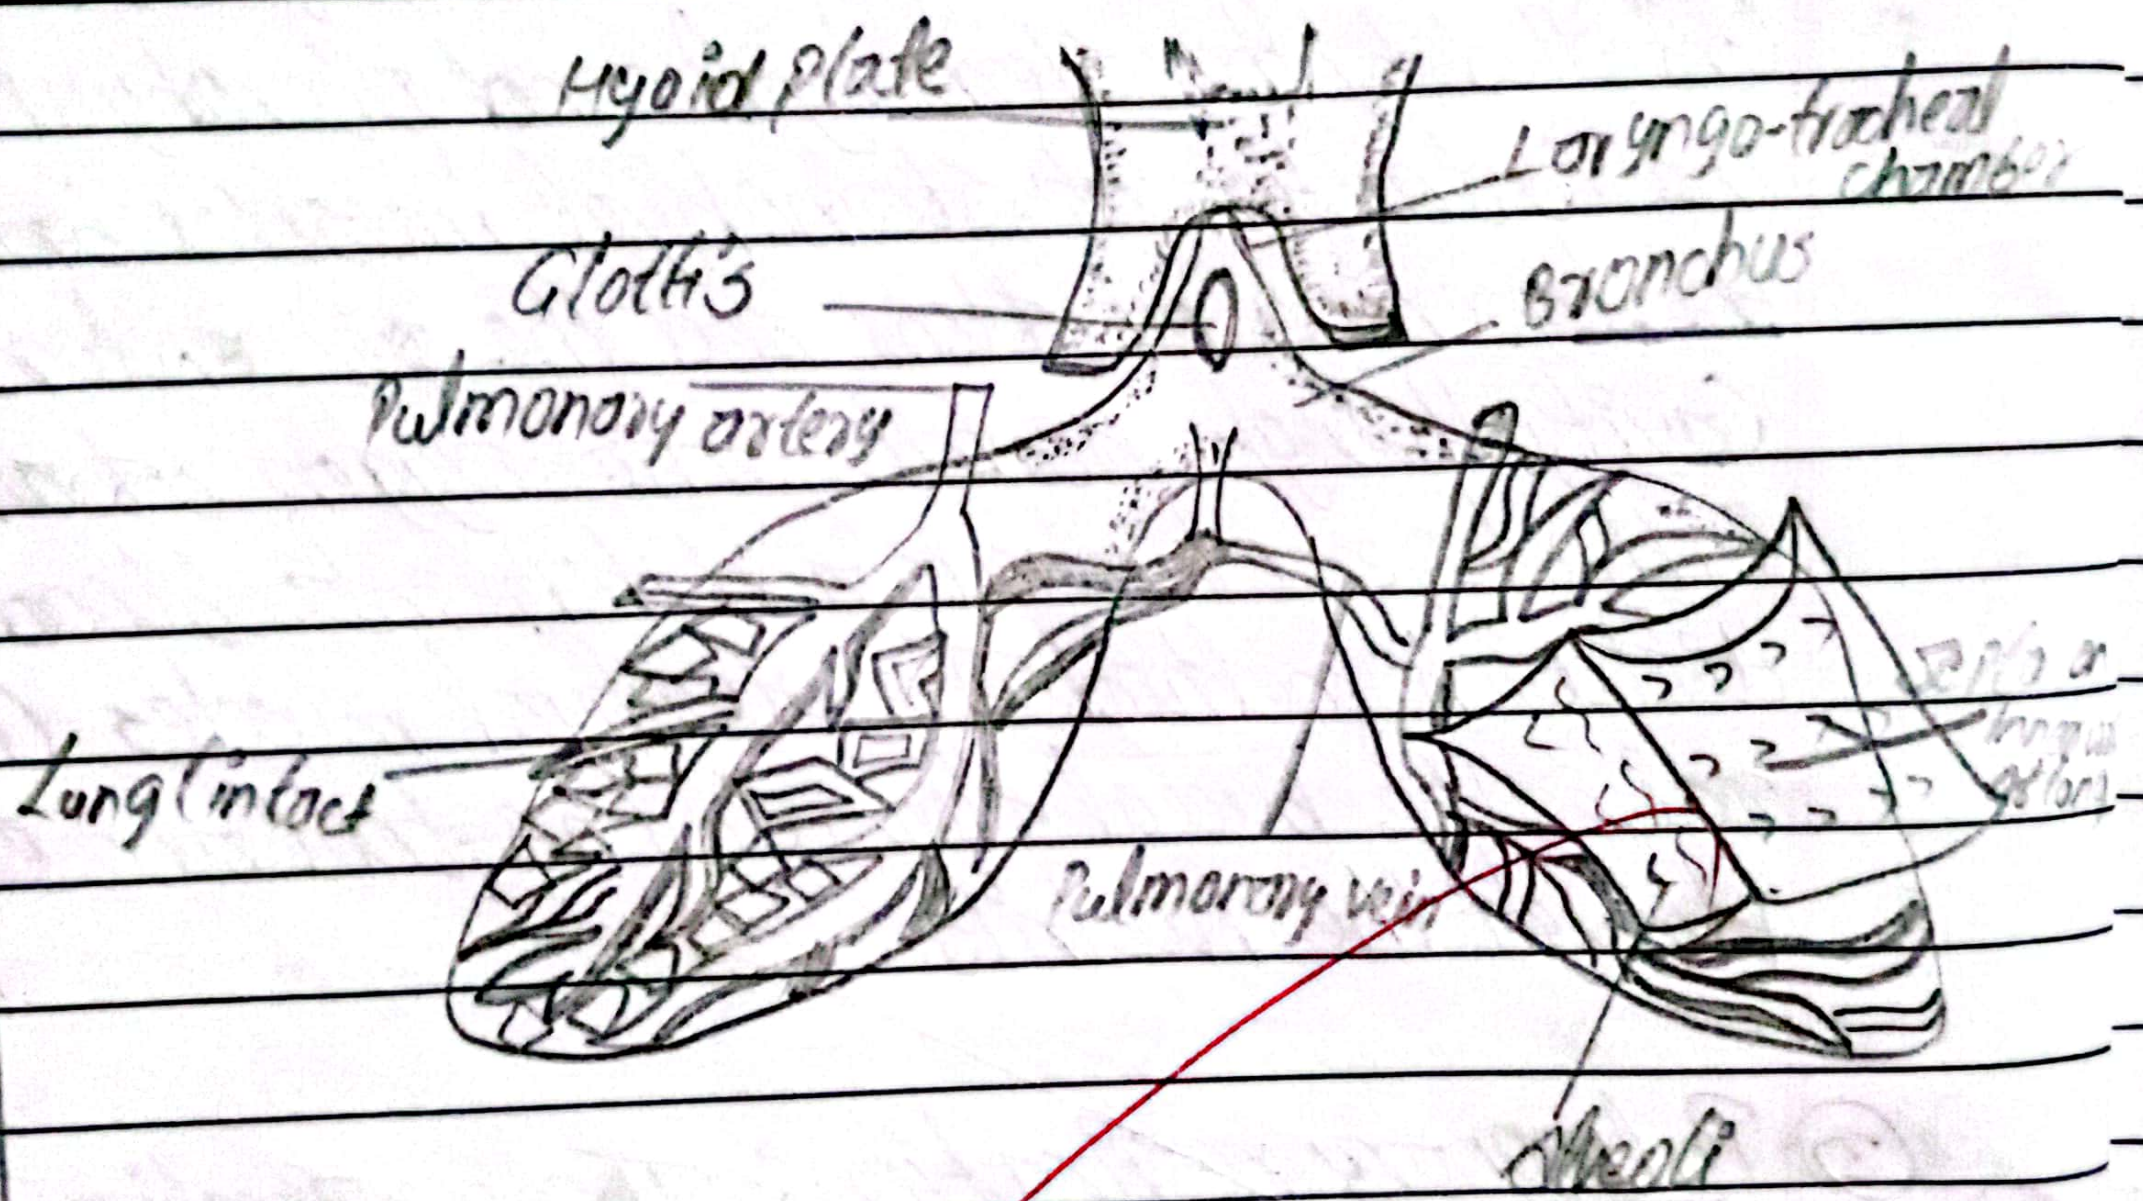 Hyoid plate
Laryngo-tracheal
chamber
Glottis
Bronchus
Pulmonary artery
Septa on
Lung (intact
Pulmonary vein
Alveoli